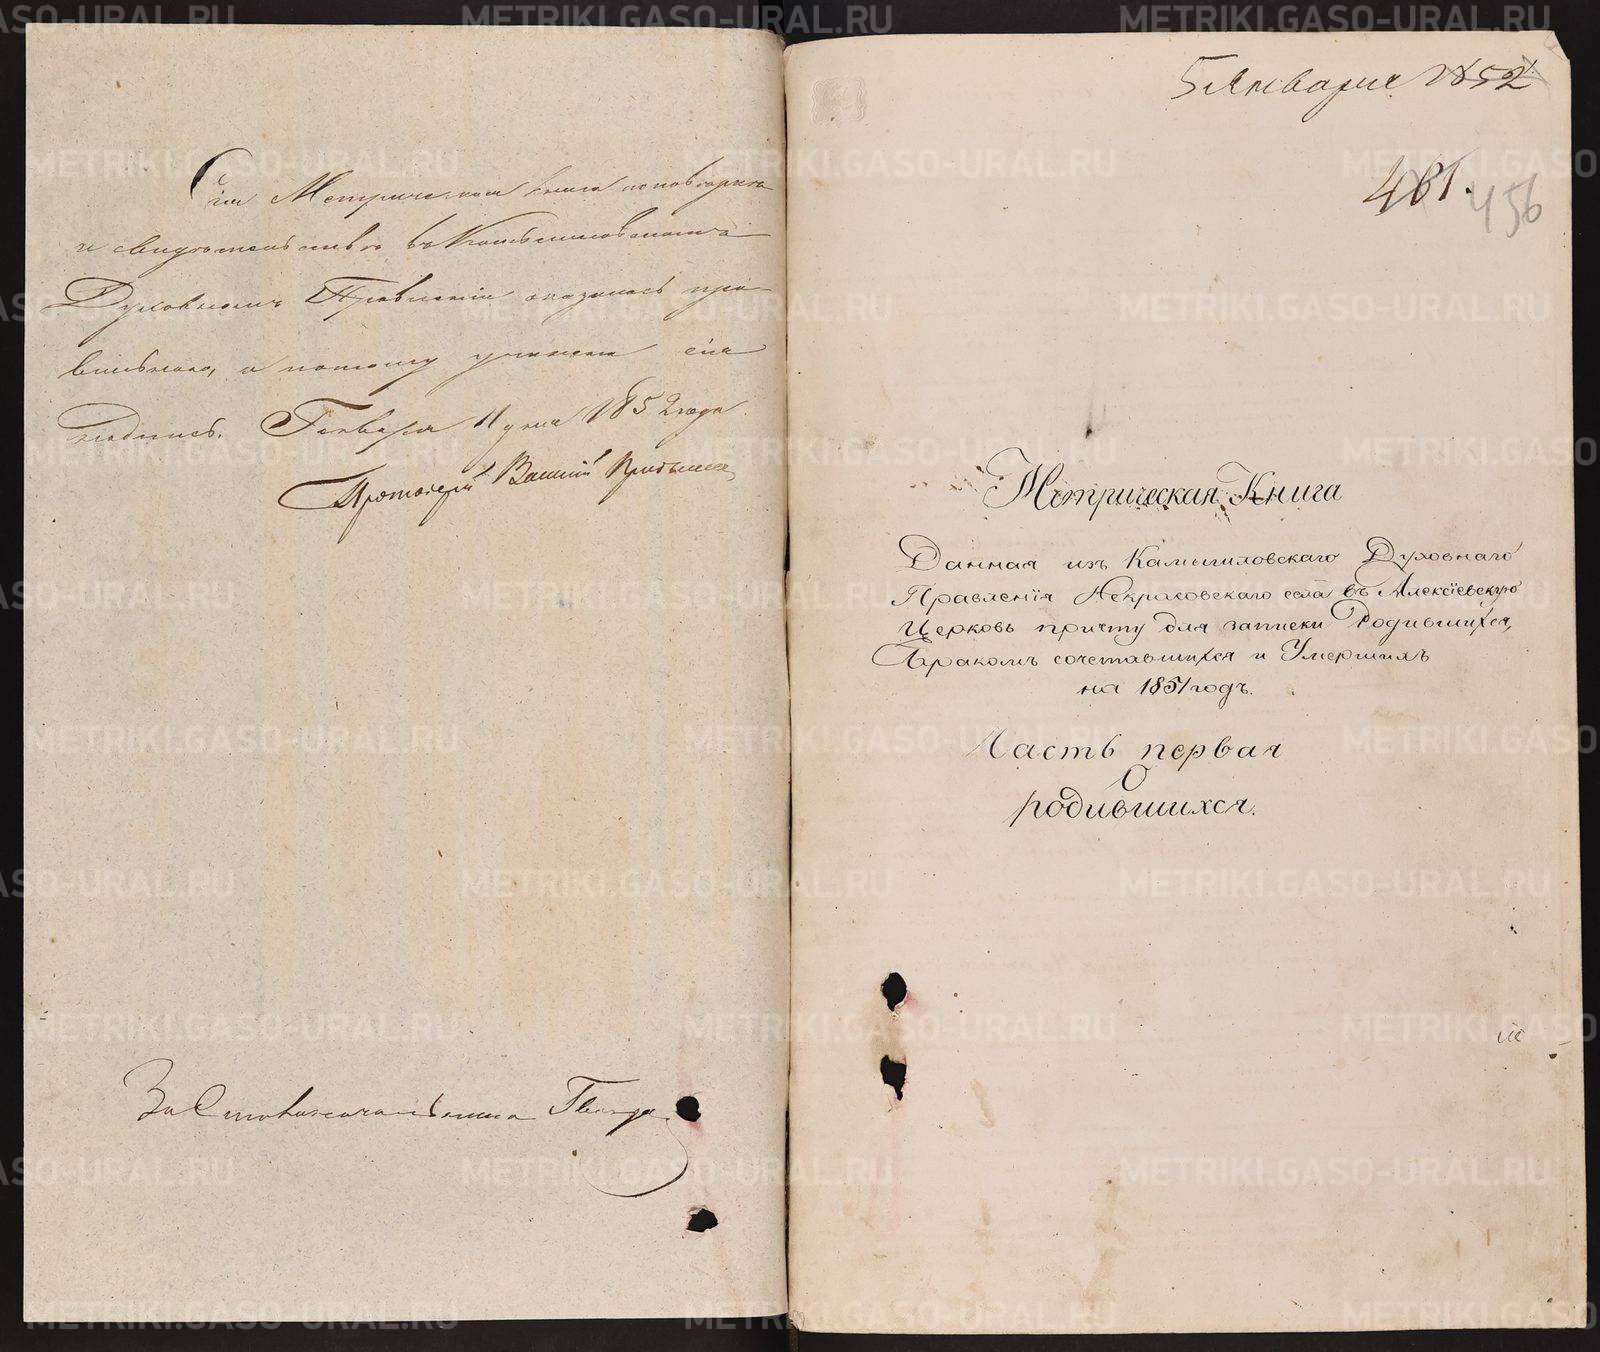 Сія Метрическая книга по повѣрке
и свидѣтельствѣ въ Камышловскомъ
Духовномъ Правленіи оказалась пра-
вильною, а потому учинена сія
надпись. Генваря 11 дня 1852 года
Протоіерей
За Столоначальника
5 Января 1852
481.
456
Метрическая Книга
Данная изъ Камышловскаго Духовнаго
Правленія Некрасовскаго села въ Алексіевскую
Церковь причту для записки Родившихся,
Бракомъ сочетавшихся и Умершихъ
на 1851 годъ.
Часть первая
О
родившихся.
METRIKI.GASO-URAL.RU